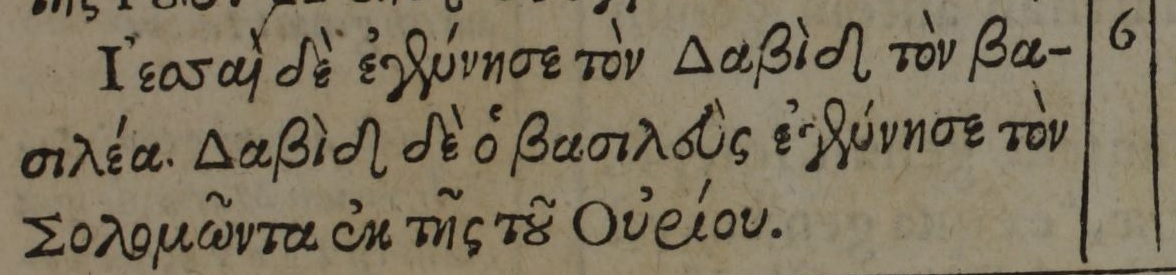 Ἰεσσαὶ δὲ ἐγέννησε τὸν Δαβὶδ τὸν βα- 6
σιλέα. Δαβὶδ δὲ ὁ βασιλεὺς ἐγέννησε τὸν
Σολομῶντα ἐκ τῆς τοῦ Οὐρίου.